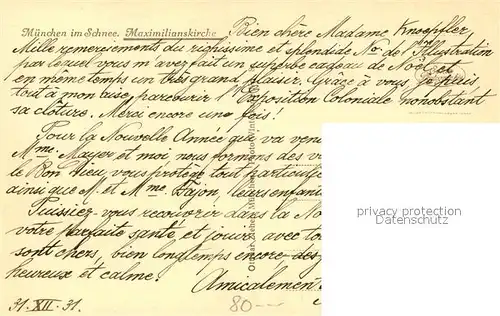 München im Schnee. Maximilianskirche
Bien chère Madame Knoepffler,
Mille remerciements du richissime et splendide No. de l'Illustration
par lequel vous m'avez fait un superbe cadeau de Noël et
en même temps un très grand plaisir. Grâce à vous je puis
tout à mon aise parcourir l'Exposition Coloniale nonobstant
sa clôture. Merci encore une fois!
Pour la Nouvelle Année que va
Mme. Mayer et moi, nous formons des
le Bon Dieu vous protège tout
ainsi que M. et Mme. Bajon, leurs
Puissiez-vous recouvrer dans la
votre parfaite santé et jouir, avec
sont chers, bien longtemps encore
heureux et calme!
Amicalement
31. XII. 31.
80
privacy protection
Datenschutz